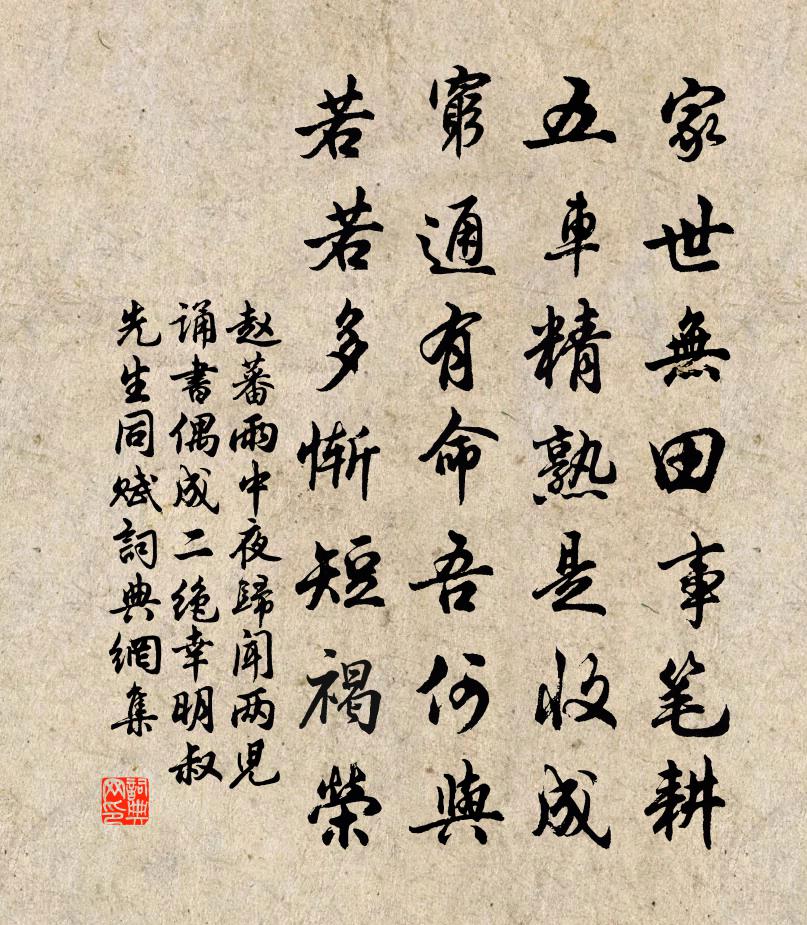 家世無田事笔耕
五車精熟是收成
窮通有命吾何與
若若多慚短褐榮
赵蕃雨中夜歸闻两児
诵書偶成二绝幸明叔
先生同赋詞典網集
詞典網印